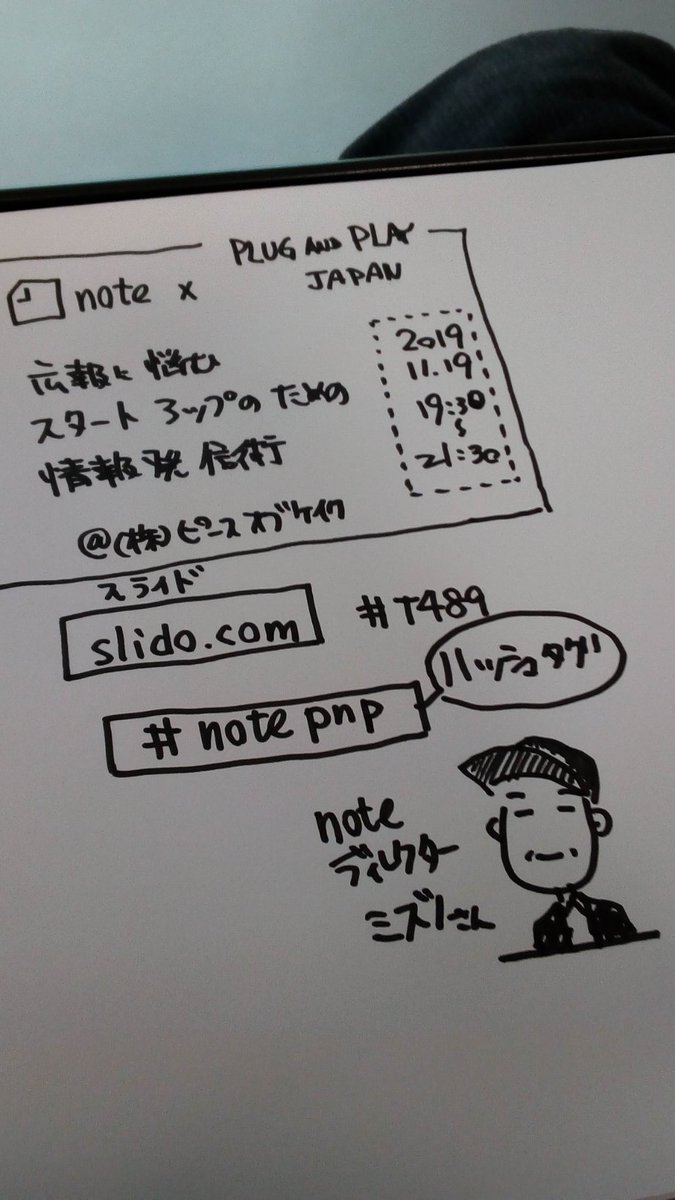 note x PLUG AND PLAY JAPAN
広報に悩む
スタートアップのための
情報発信術
@(株)ピースオブケイク
2019
11.19
19:30
〜
21:30
スライド
slido.com
#T489
#notepnp
ハッシュタグ
note
ディレクター
ミズノさん